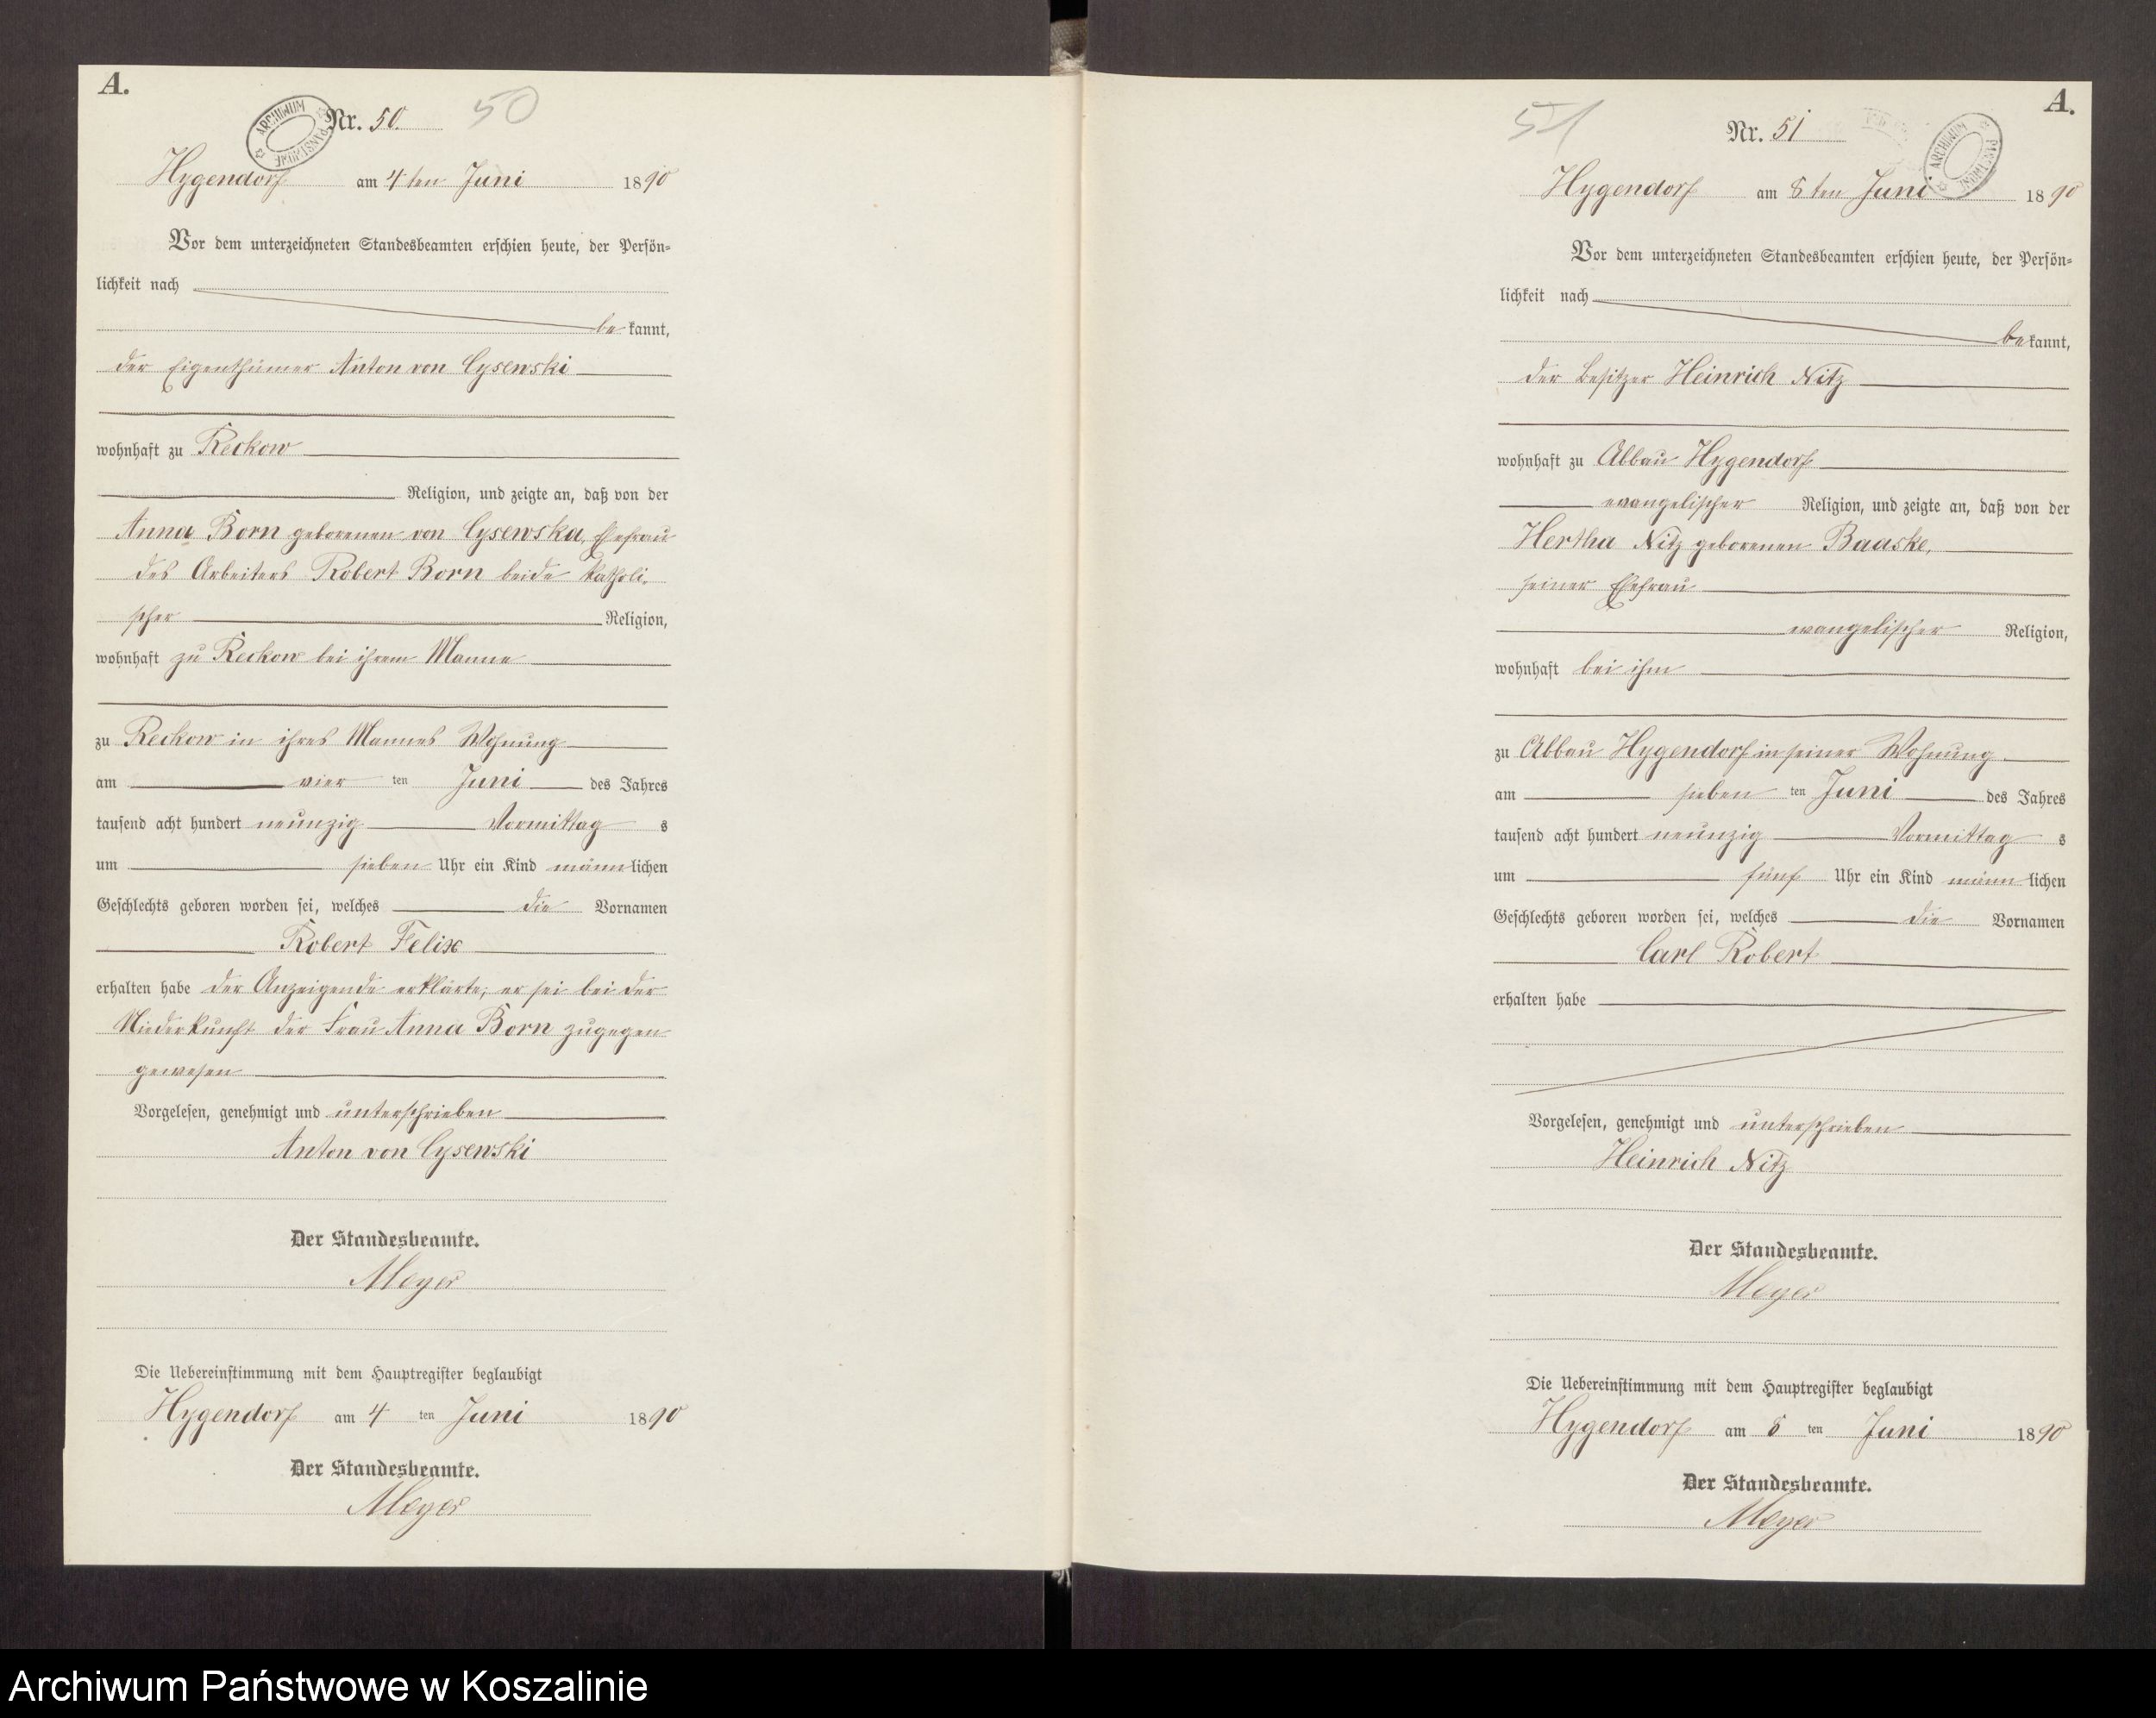 A.
ARCHIWUM PAŃSTWOWE
Nr. 50. 50
Hygendorf am 4ten Juni 1890
Vor dem unterzeichneten Standesbeamten erschien heute, der Persön-
lichkeit nach
be kannt,
der Eigenthümer Anton von Cysewski
wohnhaft zu Reckow
Religion, und zeigte an, daß von der
Anna Born geborenen von Cysewska, Ehefrau
des Arbeiters Robert Born beide katholi-
scher Religion,
wohnhaft zu Reckow bei ihrem Manne
zu Reckow in ihres Mannes Wohnung
am vier ten Juni des Jahres
tausend acht hundert neunzig Vormittag s
um sieben Uhr ein Kind männ lichen
Geschlechts geboren worden sei, welches die Vornamen
Robert Felix
erhalten habe der Anzeigende erklärte, er sei bei der
Niederkunft der Frau Anna Born zugegen
gewesen
Vorgelesen, genehmigt und unterschrieben
Anton von Cysewski
Der Standesbeamte.
Meyer
Die Uebereinstimmung mit dem Hauptregister beglaubigt
Hygendorf am 4 ten Juni 1890
Der Standesbeamte.
Meyer
A.
51 Nr. 51
ARCHIWUM PAŃSTWOWE
Hygendorf am 8ten Juni 1890
Vor dem unterzeichneten Standesbeamten erschien heute, der Persön-
lichkeit nach
be kannt,
der Besitzer Heinrich Nitz
wohnhaft zu Abbau Hygendorf
evangelischer Religion, und zeigte an, daß von der
Hertha Nitz geborenen Baaske,
seiner Ehefrau
evangelischer Religion,
wohnhaft bei ihm
zu Abbau Hygendorf in seiner Wohnung
am sieben ten Juni des Jahres
tausend acht hundert neunzig Vormittag s
um fünf Uhr ein Kind männ lichen
Geschlechts geboren worden sei, welches die Vornamen
Carl Robert
erhalten habe
Vorgelesen, genehmigt und unterschrieben
Heinrich Nitz
Der Standesbeamte.
Meyer
Die Uebereinstimmung mit dem Hauptregister beglaubigt
Hygendorf am 8 ten Juni 1890
Der Standesbeamte.
Meyer
Archiwum Państwowe w Koszalinie